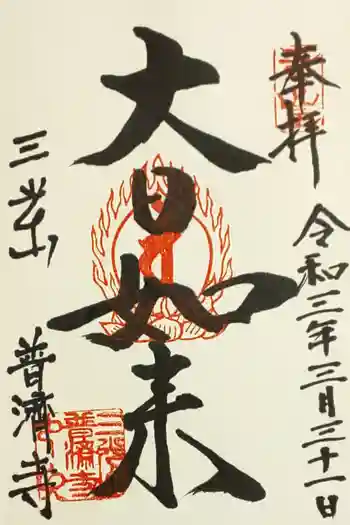 奉拝
令和三年三月三十一日
大日如来
普濟寺